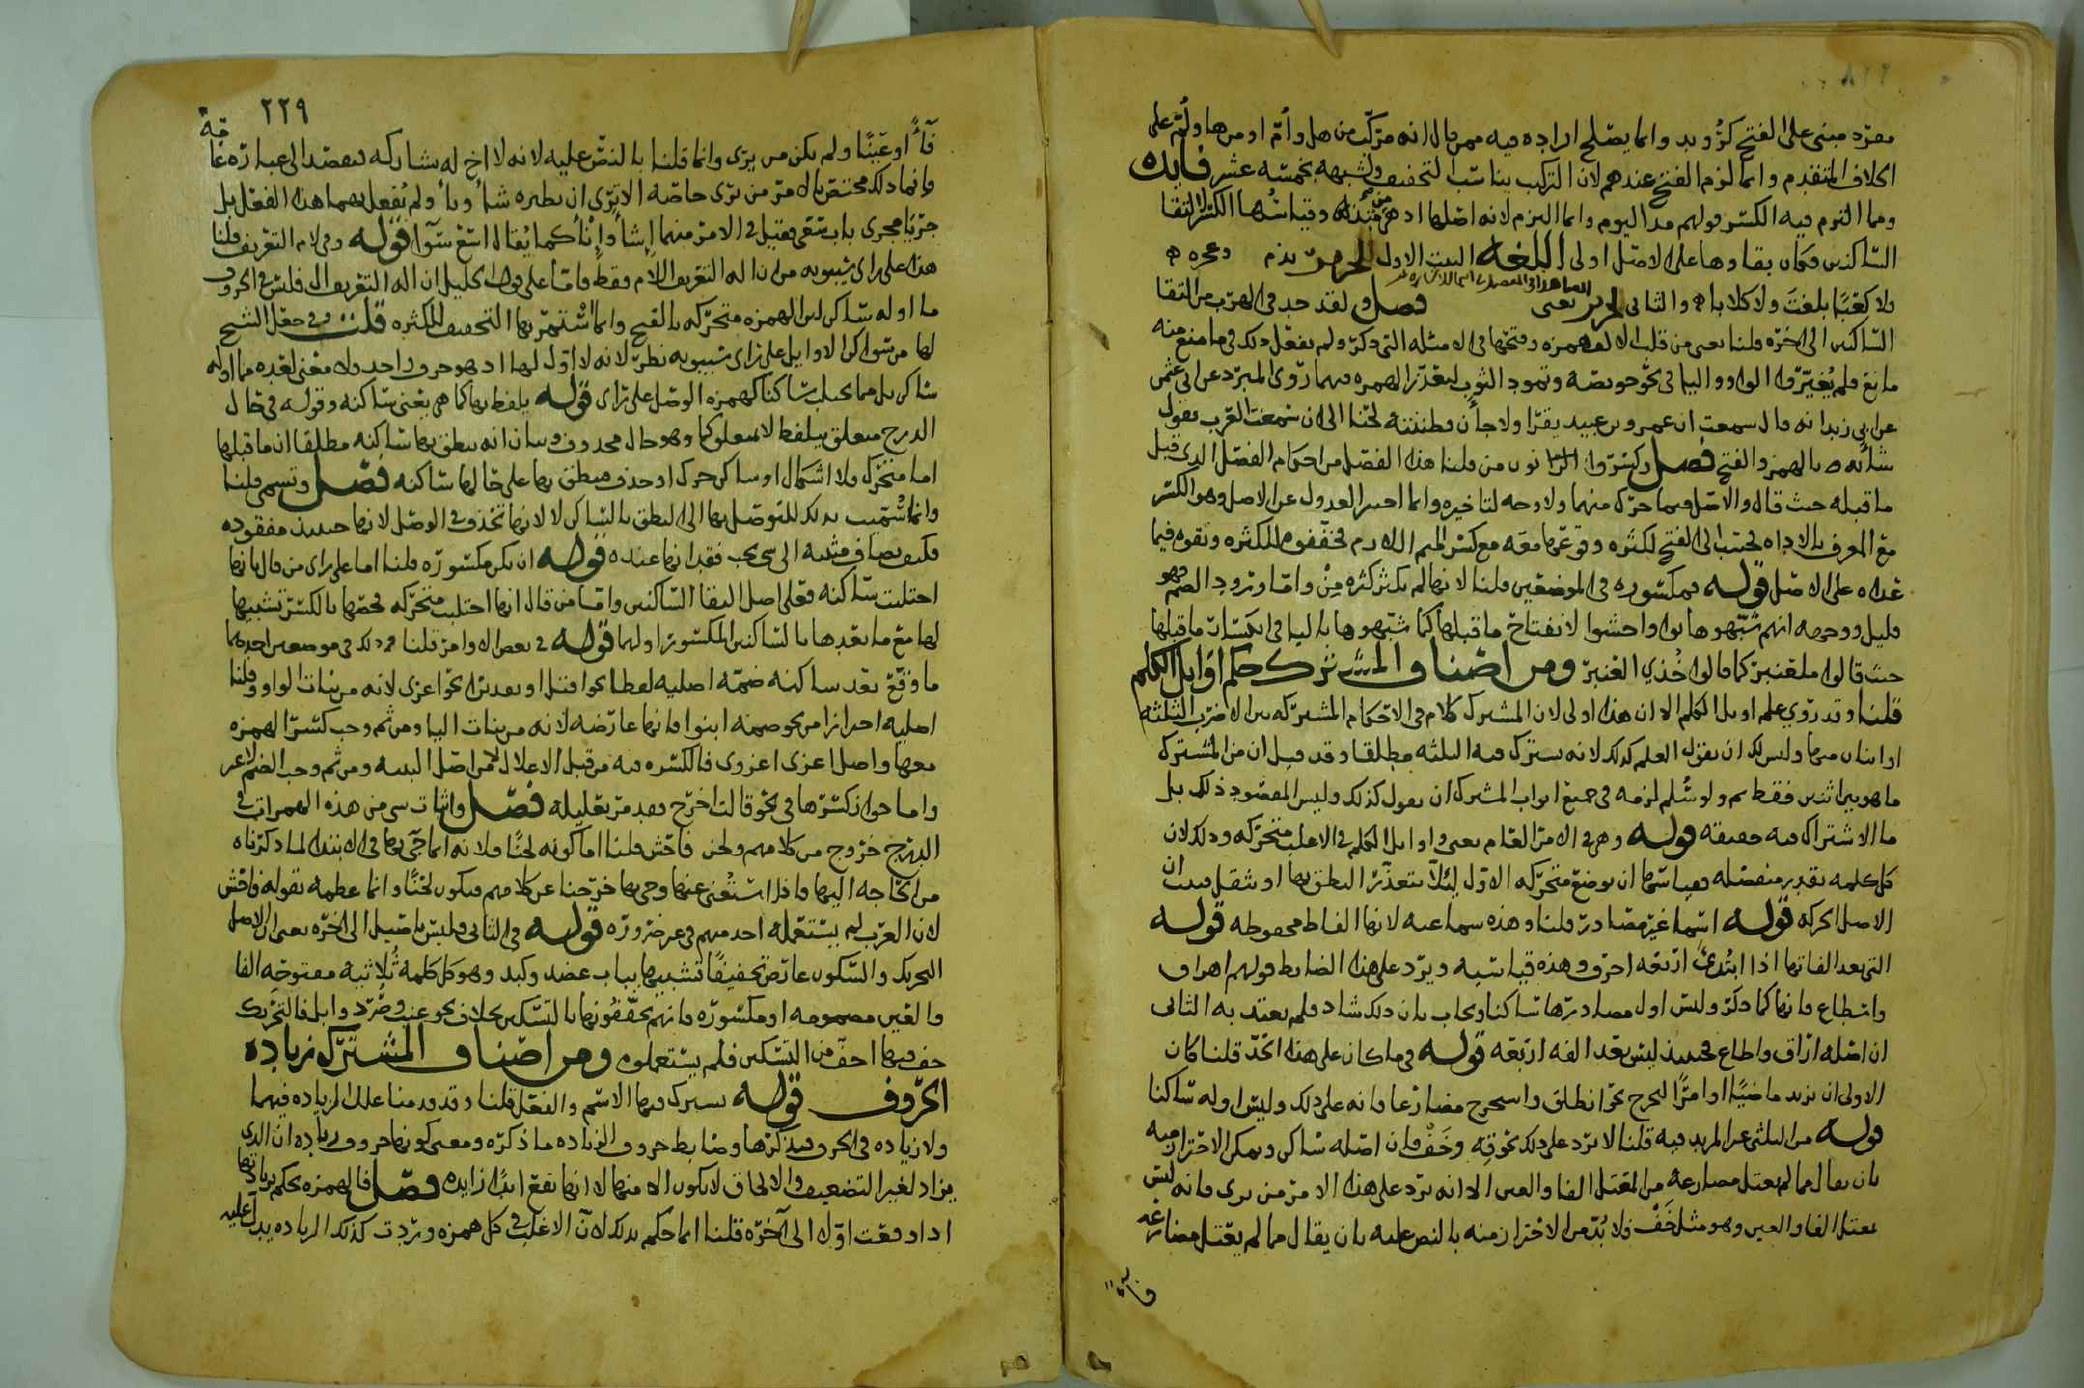 مفرد مبنى على الفتح كرويد وانما يصلح ايراده فيه ممن قال انه مركب من هل وأم او من ها ولم على
الخلاف المتقدم وانما لزم الفتح عندهم لان التركيب يناسب التخفيف ولشبهه بخمسه عشر فايده
ومما التزم فيه الكسر قولهم مذ اليوم وانما التزم لانه اصلها اذ هى منذ وقياسها الكسر لالتقا
الساكنين فكان بقاوها على الاصل اولى اللغه البيت الاول لجرير
فلا كعبا بلغت ولا كلابا والثانى لجرير يعنى فصل ولقد جد فى الهرب من التقا
الساكنين الى اخره قلنا يعنى من قلب الالف همزه وفتحها فى الامثله التى ذكر ولم يفعل ذلك فى ما منع منه
مانع فلم يغيروا الواو واليا فى نحو خويصه وتمود الثوب لتعذر الهمزه فيهما روى المبرد عن ابى عثمن
عن ابى زيد انه قال سمعت ان عمرو بن عبيد يقرا ولا جأن فظننته لحنا الى ان سمعت العرب تقول
شأبه بالهمز والفتح فصل وكسروا نون من قلنا هذا الفصل من احكام الفصل الذى قبل
ما قبله حيث قال والاصل فيما حرك منهما ولا وجه لتاخيره وانما اختير العدول عن الاصل وهو الكسر
مع المعرف بالاداه لحسب الى الفتح لكثره وقوعها معه مع كسر الميم اللازم فخففوه للكثره وبقوه فيما
عداه على الاصل قوله فمكسوره فى الموضعين قلنا لانها لم يكثر كثره من واما ورود الضم فهو
قليل ووجهه انهم شبهوها بواو اخشوا لانفتاح ما قبلها كما شبهوها باليا فى انكسار ما قبلها
حيث قالوا ملقنبر كما قالوا خذى العنبر ومن اصناف المشترك حكم اوائل الكلم
قلنا وقد روى علم اوايل الكلم الا ان هذا اولى لان المشترك كلام فى الاحكام المشتركه بين الاضرب الثلثه
او اثنان منها وليس لك ان تقول العلم كذلك لانه يشترك فيه الثلثه مطلقا وقد قيل ان من المشترك
ما هو بين اثنين فقط ولو سلم لزمه فى جميع ابواب المشترك ان يقول كذلك وليس المقصود ذلك بل
ما الاشتراك فيه حقيقه قوله وهى فى الامر العام يعنى اوايل الكلم فى الاغلب متحركه وذلك لان
كل كلمه تقدير منفصله فقياسها ان يوضع متحركه الاول ليلا يتعذر النطق بها او يثقل فثبت ان
الاصل الحركه قوله اسما غير مصادر قلنا وهذه سماعيه لانها الفاظ محفوظه قوله
التى بعد الفاتها اذا ابتدئ اربعه احرف وهذه قياسيه ويرد على هذا الضابط قولهم اهراف
واسطاع فانها كما ذكر وليس اول مصادرها ساكنا ويجاب بان ذلك شاذ فلم يعتد به الثانى
ان اصله اراق واطاع فحينئذ ليس بعد الفه اربعه قوله فى ما كان على هذا الحد قلنا كان
الاولى ان يزيد ماضيا او امرا ليخرج نحو انطلق واستخرج مضارعا فانه على ذلك وليس اوله ساكنا
قوله من الثلثى غير المزيد فيه قلنا لا يرد على ذلك نحو قه وخف فان اصله ساكن ويمكن الاحتراز منه
بان يقال مما لم يعتل مضارعه من المعتل الفا والعين الا انه يرد على هذا الامر من يرى فانه ليس
معتل الفا والعين وهو مثل خف فلا بد من الاحتراز منه بالنص عليه بان يقال مما لم يعتل مضارعه
٢٢٩
فأ او عينا ولم يكن من يرى وانما قلنا بالنص عليه لانه لا اخ له يشاركه فيقصد الى عباره عامه
وانما ذلك مختص بالامر من يرى خاصه الا ترى ان نظيره شأ ونأ ولم يفعل بهما هذا الفعل بل
جريا مجرى باب سعى فقيل فى الامر منهما إشأ وإنأ كما يقال اسع سوآ قوله وفى لام التعريف قلنا
هذا على راى سيبويه من ان اله التعريف اللام فقط واما على قول الخليل ان اله التعريف ال فليس فى الحروف
ما اوله ساكن لين الهمزه متحركه بالفتح وانما استمر بها التخفيف للكثره قلت وفى جعل الشيخ
لها من سواكن الاوايل على راى سيبويه نظر لانه لا اول لها اذ هو حرف واحد ولا معنى لعده مما اوله
ساكن بل مما يجلب ساكنا كهمزه الوصل على راى قوله يلفظ بها كما هى يعنى ساكنه وقوله فى حال
الدرج متعلق بيلفظ لا متعلق كما وهو حال محذوف وبيان انه ينطق بها ساكنه مطلقا ان ما قبلها
اما متحرك ولا اشكال او ساكن حرك او حذف فينطق بها على حالها ساكنه فصل وتسمى قلنا
وانما سميت بذلك للتوصل بها الى النطق بالساكن لا لانها تحذف فى الوصل لانها حينئذ مفقوده
فكيف يضاف مثبه الى شى يجب فقدانها عنده قوله ان يكن مكسوره قلنا اما على راى من قال بانها
اجتلبت ساكنه فعلى اصل التقا الساكنين واما من قال انها اجتلبت متحركه فخصها بالكسر تشبيها
لها مع ما بعدها بالساكنين المكسور اولهما قوله فى بعض الاوامر قلنا وذلك فى موضعين احدهما
ما وقع بعد ساكنه ضمه اصليه لفظا نحو اقتل او تقديرا نحو اغزى لانه من بنات الواو وقلنا
اصليه احترازا من نحو ضمه ابنوا فانها عارضه لانه من بنات اليا ومن ثم وجب كسر الهمزه
معها واصل اغزى اغزوى فالكسره فيه من قبل الاعلال لا من اصل البنيه ومن ثم وجب الضم
واما جواز كسرها فى نحو قالت اخرج فقد مر تعليله فصل واثبات شى من هذه الهمزات فى
الدرج خروج من كلامهم ولحن فاحش قلنا اما كونه لحنا فلانه انما جى بها فى الابتدا لما ذكرناه
من الحاجه اليها فاذا استغنى عنها وجى بها خرجنا عن كلامهم فيكون لحنا وانما عظمه بقوله فاحش
لان العرب لم يستعمله احد منهم فى غير ضروره قوله فى الثانى وليس باصيل الى اخره يعنى ان الاصل
التحريك والسكون عارض تخفيفا تشبيها بباب عضد وكبد وهو كل كلمه ثلاثيه مفتوحه الفا
والعين مضمومه او مكسوره فانهم يخففونها بالتسكين بخلاف نحو عنب وصرد وابل فالتحريك
فيها اخف من التسكين فلم يستعملوه ومن اصناف المشترك زياده
الحروف قوله يشترك فيها الاسم والفعل قلنا وقد قدمنا علل الزياده فيهما
ولا زياده فى الحرف فيذكرها وضابط حروف الزياده ما ذكره ومعنى كونها حروف زياده ان الذى
يزاد لغير التضعيف والالحاق لا يكون الا منها لا انها تقع ابدا زايده فصل فالهمزه يحكم بزيادتها
اذا وقعت اولا الى آخره قلنا انما حكم بذلك لان الاغلب فى كل همزه وردت كذلك الزياده يدل عليه